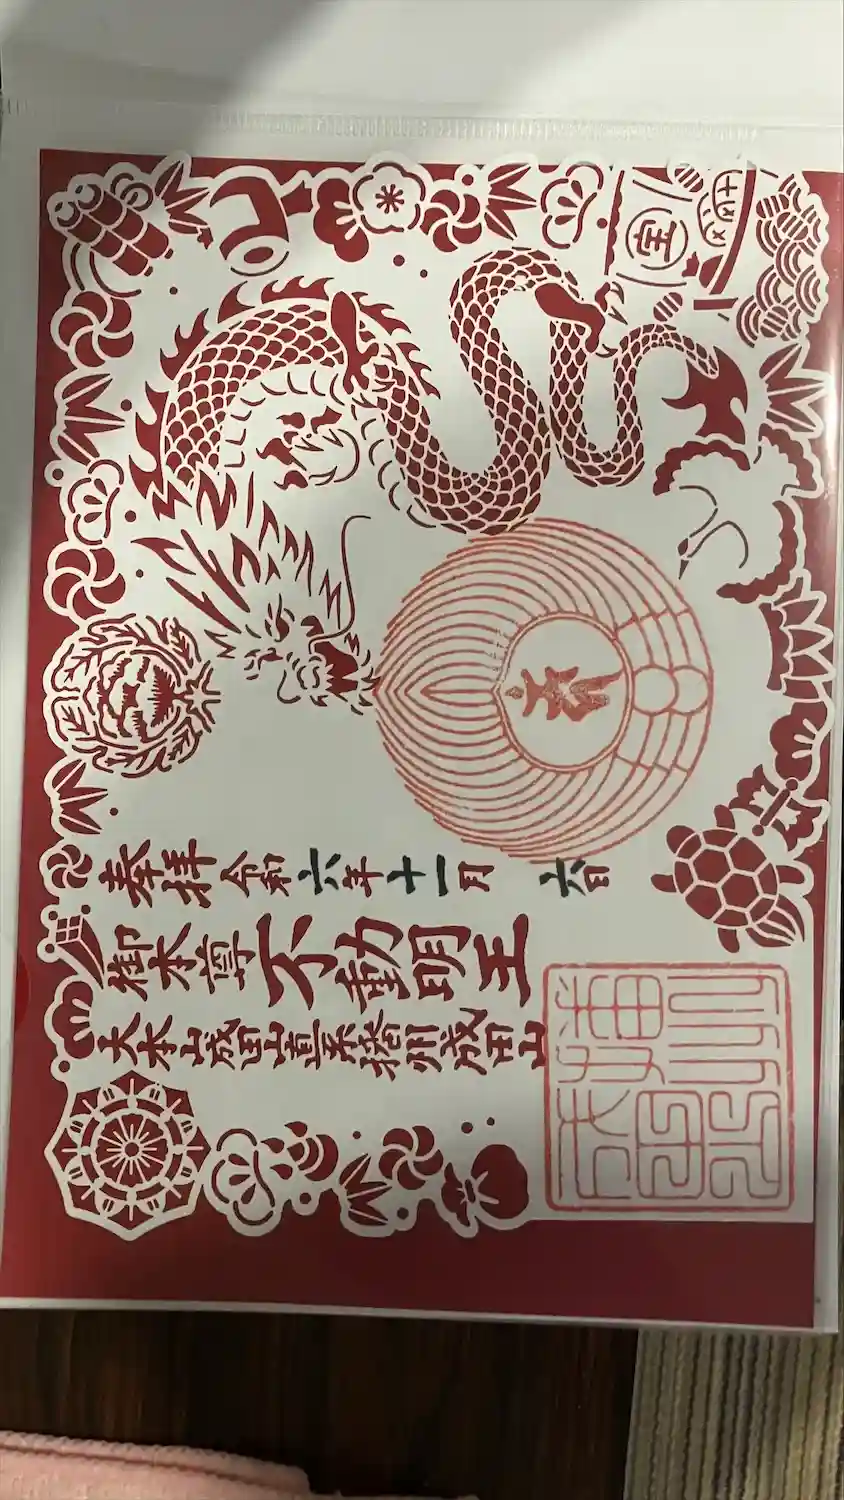 宝
奉拝 令和六年十一月六日
御本尊不動明王
大本山成田山直系播州成田山